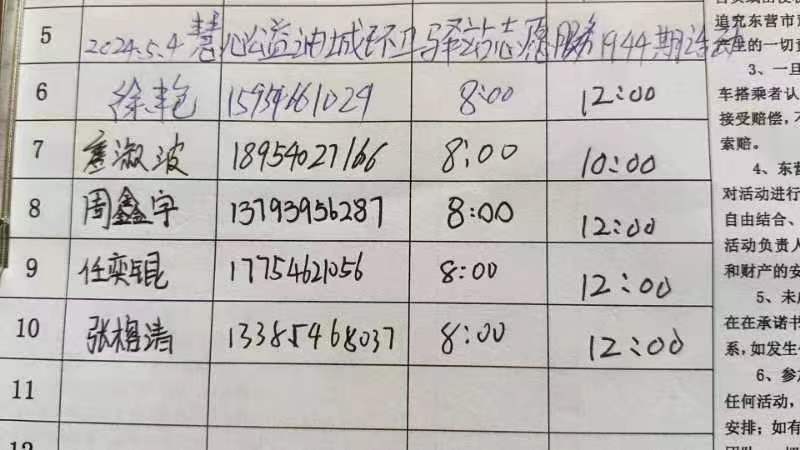 5 2024.5.4 慧心公益油城环卫驿站志愿服务1944期活动
6 徐艳 8:00 12:00
7 淑波 18954027166 8:00 10:00
8 周鑫宇 13793956287 8:00 12:00
9 任奕锟 17754621056 8:00 12:00
10 张梅清 13385468037 8:00 12:00
11
追究东营市
产生的一切
3、一旦
车搭乘者认
接受赔偿,不
索赔。
4、东营
对活动进行
自由结合、
活动负责人
和财产的安
5、未
在在承诺书
系,如发生
6、参加
任何活动,
安排;如有